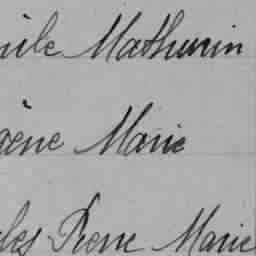 mile Mathurin
gène Marie
les Pierre Marie